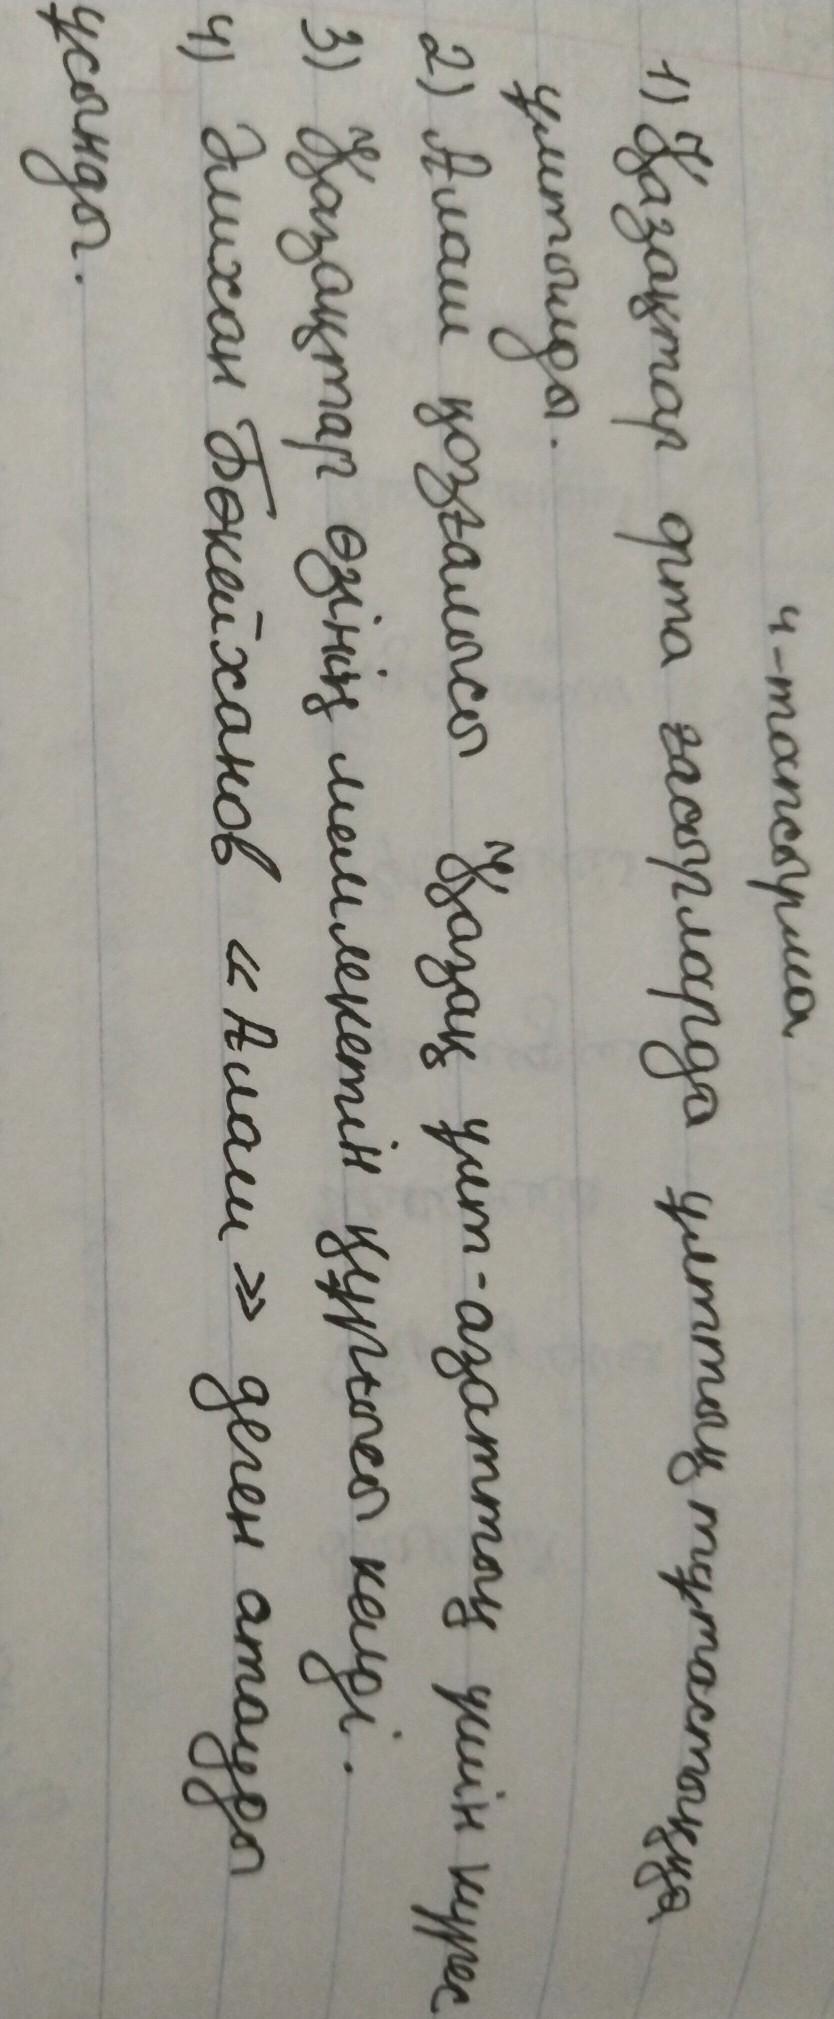 4-тапсырма
1) Қазақтар орта ғасырларда ұлттық тұтастыққа
ұмтылды.
2) Алаш қозғалысы Қазақ ұлт-азаттық үшін күрес
3) Қазақтар өзінің мемлекетін құрғысы келді.
4) Әлихан Бөкейханов «Алаш» деген атауды
ұсынды.